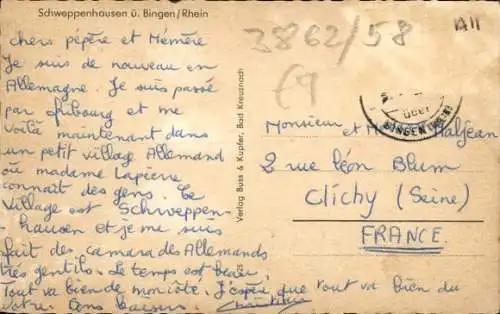 Schweppenhausen ü. Bingen/Rhein
3862/58
All
chers pépère et Mémère
Je suis de nouveau en
Allemagne. Je suis passé
par fribourg et me
voilà maintenant dans
un petit village Allemand
où madame Lapierre
connait des gens. Le
village est Schweppen-
hausen et je me suis
fait des camarades Allemands
très gentils. Le temps est beau
Tout va bien de mon côté. J'espère que tout va bien du
votre. Gros baisers.
Verlag Buss & Kupfer, Bad Kreuznach
über
BINGEN (RHEIN)
Monsieur et
2 rue léon Blum
Clichy (Seine)
FRANCE.